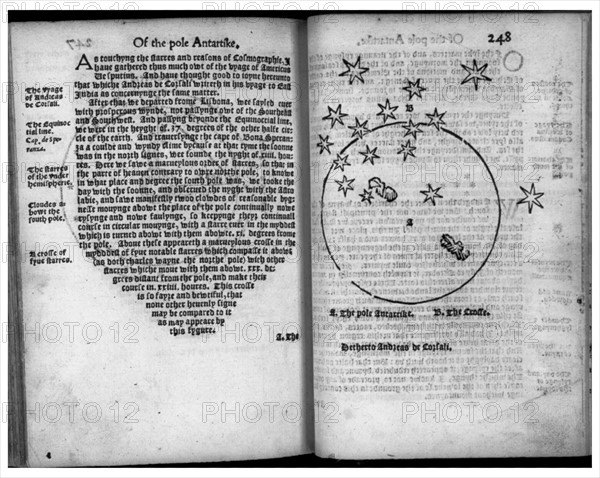 Of the pole Antartike.
As touchyng the starres and reasons of Cosmographie, I
haue gathered thus much owt of the vyage of Americus
Vesputius. And haue thought good to ioyne hereunto
that whiche Andreas de Corsali wryteth in his vyage to East
India as concernynge the same matter.
After that we departed frome Lisbona, we sayled euer
with prosperous wynde, not passynge owt of the Southeast
and Southwest. And passyng beyonde the Equinoctial line,
we were in the heyght of .37. degrees of the other halfe cir-
cle of the earth. And trauersynge the cape of Bona Speran-
za a coulde and wyndy clime bycause at that tyme the soonne
was in the north signes, we founde the nyght of .xiiii. hou-
res. Here we sawe a marueylous order of starres, so that in
the parte of heauen contrary to owre northe pole, to knowe
in what place and degree the south pole was, we tooke the
day with the soonne, and obserued the nyght with the Astro
labie, and sawe manifestly twoo clowdes of reasonable byg-
nesse mouynge abowt the place of the pole continually nowe
rysynge and nowe faulynge, so keepynge theyr continuall
course in circular mouynge, with a starre euer in the myddest
which is turned abowt with them abowte .xi. degrees frome
the pole. Aboue these appeareth a marueylous crosse in the
myddest of fyue notable starres which compasse it abowt
(as doth charles wayne the northe pole) with other
starres whiche moue with them abowt .xxx. de-
grees distant from the pole, and make their
course in .xxiiii. houres. This crosse
is so fayre and bewtiful, that
none other heuenly signe
may be compared to it
as may appeare by
this fygure.
A. The
The vyage of Andreas
de Corsali.
The Equinoc
tial line.
Cap. de spe-
ranza.
The starres
of the vnder
hemispherie,
Cloudes a-
bowt the
south pole.
A crosse of
fyue starres.
4
248
B
A
A. The pole Antartike.
B. The Crosse.
Hetherto Andreas de Corsali.
PHOTO 12